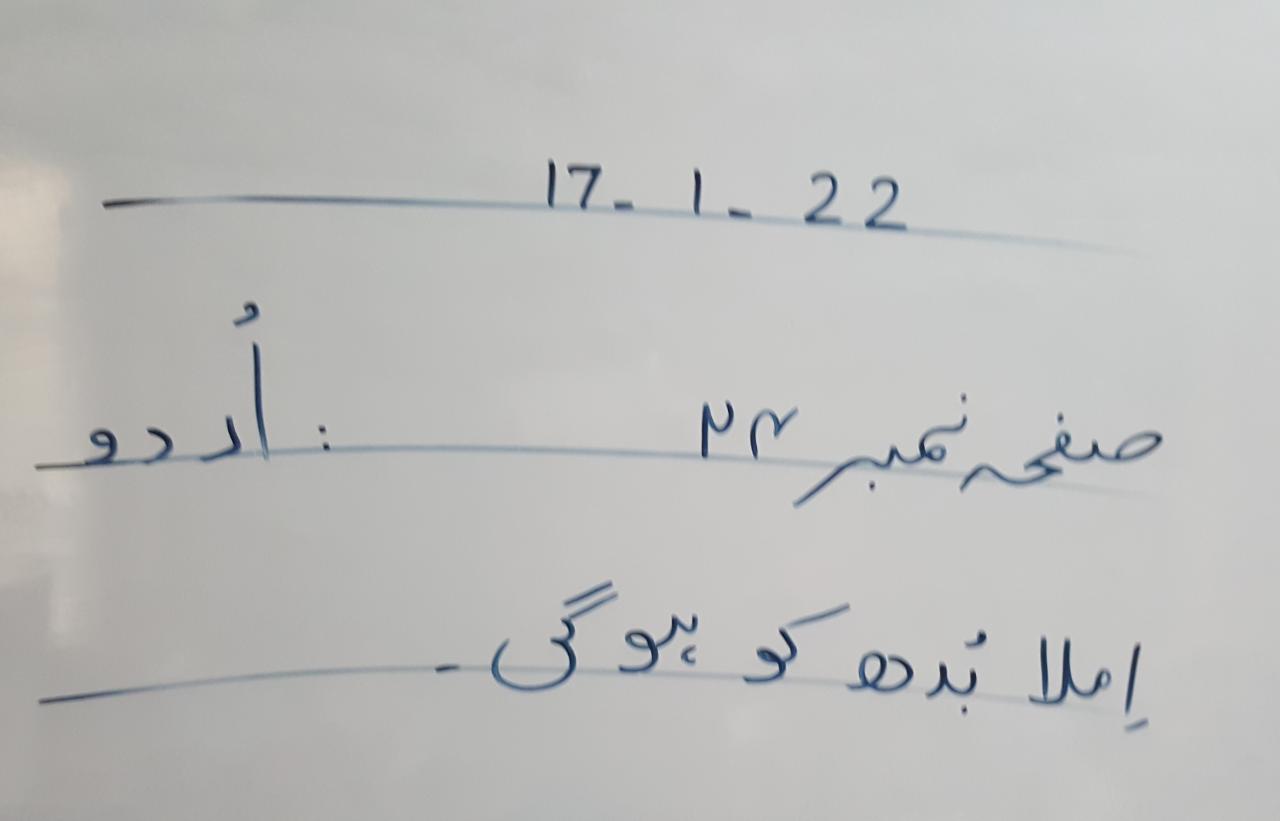 17-1-22
صفحہ نمبر ۲۳ : اُردو
اِملا بُدھ کو ہوگی۔